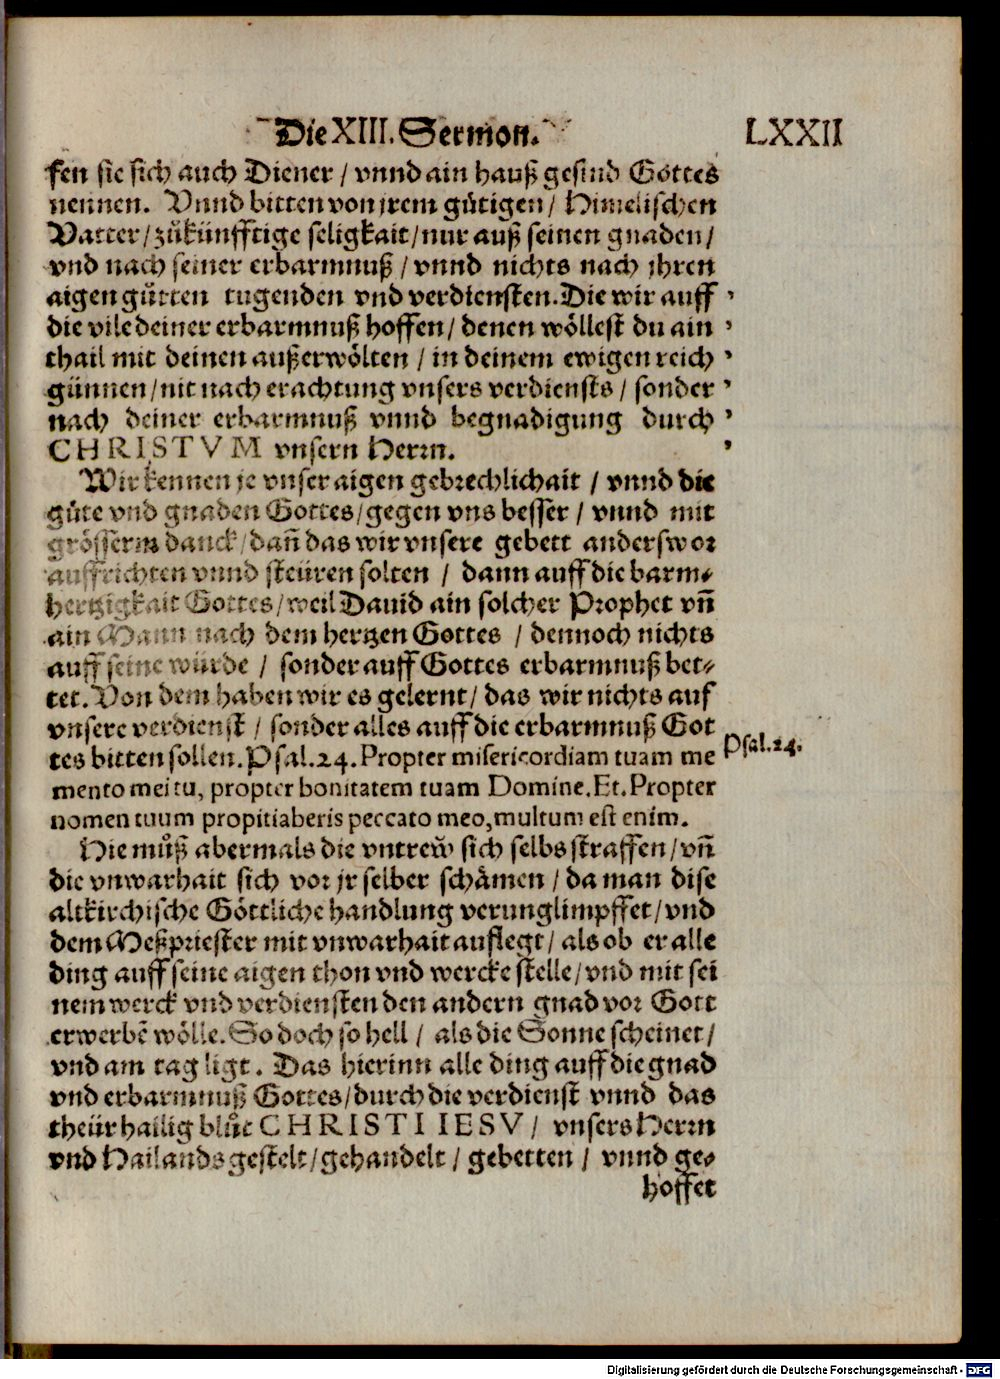 Die XIII. Sermon. LXXII
fen sie sich auch Diener / vnnd ain hauß gesind Gottes
nennen. Vnnd bitten von jrem gütigen / Himelischen
Vatter / zůkünfftige seligkait / nur auß seinen gnaden /
vnd nach seiner erbarmnuß / vnnd nichts nach jhren
aigen gůtten tugenden vnd verdiensten. Die wir auff ,
die vile deiner erbarmnuß hoffen / denen wöllest du ain ,
thail mit deinen außerwölten / in deinem ewigen reich ,
günnen / nit nach erachtung vnsers verdiensts / sonder ,
nach deiner erbarmnuß vnnd begnadigung durch ,
CHRISTVM vnsern Herrn. ,
Wir kennen je vnser aigen gebrechlichait / vnnd die
güte vnd gnaden Gottes / gegen vns besser / vnnd mit
grösserm danck / dañ das wir vnsere gebett anderswor
auffrichten vnnd steüren solten / dann auff die barm-
hertzigkait Gottes / weil Dauid ain solcher Prophet vñ
ain Mann nach dem hertzen Gottes / dennoch nichts
auff seine würde / sonder auff Gottes erbarmnuß bet-
tet. Von dem haben wir es gelernt / das wir nichts auf
vnsere verdienst / sonder alles auff die erbarmnuß Got
tes bitten sollen. Psal. 24. Propter misericordiam tuam me
Psal. 24.
mento mei tu, propter bonitatem tuam Domine. Et. Propter
nomen tuum propitiaberis peccato meo, multum est enim.
Hie můß abermals die vntreẃ sich selbs straffen / vñ
die vnwarhait sich vor jr selber schämen / da man dise
altkirchische Göttliche handlung verunglimpffet / vnd
dem Meßpriester mit vnwarhait auflegt / als ob er alle
ding auff seine aigen thon vnd wercke stelle / vnd mit sei
nem werck vnd verdiensten den andern gnad vor Gott
erwerbẽ wölle. So doch so hell / als die Sonne scheinet /
vnd am tag ligt. Das hierinn alle ding auff die gnad
vnd erbarmnuß Gottes / durch die verdienst vnnd das
theür hailig blůt CHRISTI IESV / vnsers Herrn
vnd Hailands gestelt / gehandelt / gebetten / vnnd ge-
hoffet
Digitalisierung gefördert durch die Deutsche Forschungsgemeinschaft - DFG